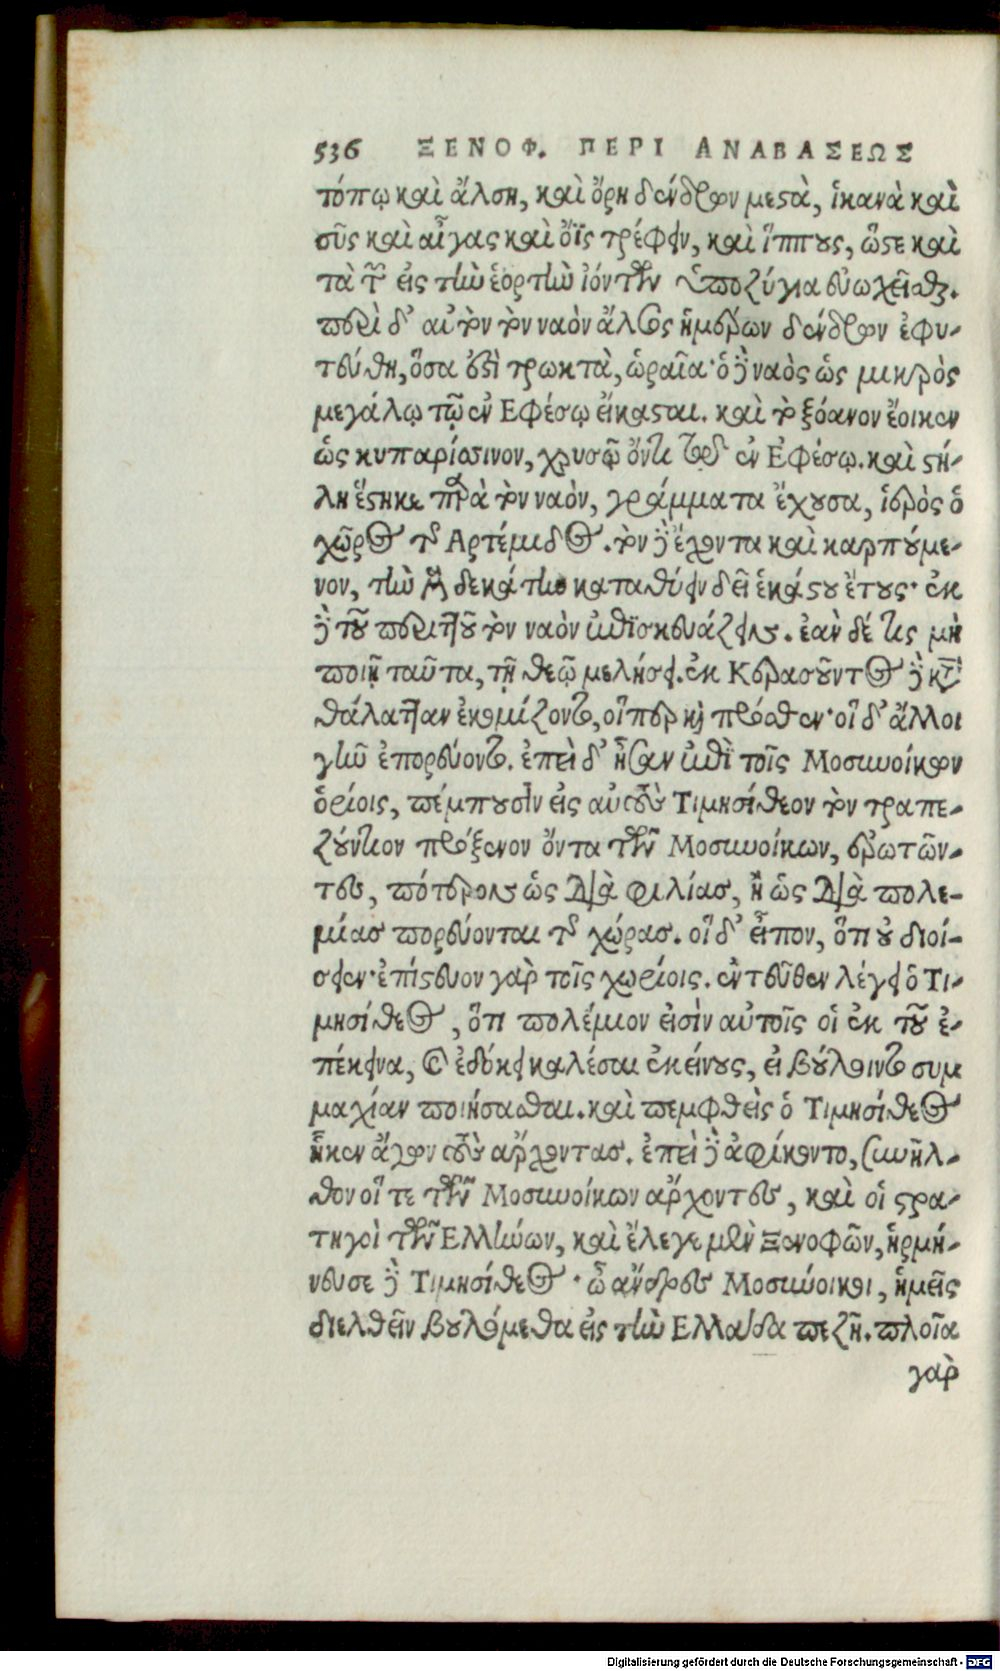 536 ΞΕΝΟΦ. ΠΕΡΙ ΑΝΑΒΑΣΕΩΣ
τόπῳ καὶ ἄλση, καὶ ὄρη δένδρων μεστὰ, ἱκανὰ καὶ
σῦς καὶ αἶγας καὶ ὄϊς τρέφειν, καὶ ἵππους, ὥστε καὶ
τὰ τῶν εἰς τὴν ἑορτὴν ἰόντων ὑποζύγια εὐωχεῖσθαι.
περὶ δ' αὐτὸν τὸν ναὸν ἄλσος ἡμέρων δένδρων ἐφυ-
τεύθη, ὅσα ἐστὶ τρωκτὰ, ὡραῖα· ὁ δὲ ναὸς ὡς μικρὸς
μεγάλῳ τῷ ἐν Εφέσῳ εἴκασται. καὶ τὸ ξόανον ἔοικεν
ὡς κυπαρίσσινον, χρυσῷ ὄντι τῷ ἐν Ἐφέσῳ. καὶ στή-
λη ἕστηκε παρὰ τὸν ναὸν, γράμματα ἔχουσα, ἱερὸς ὁ
χῶρος τῆς Αρτέμιδος. τὸν δὲ ἔχοντα καὶ καρπούμε-
νον, τὴν μὲν δεκάτην καταθύειν δεῖ ἑκάστου ἔτους· ἐκ
δὲ τοῦ περιττοῦ τὸν ναὸν ἐπισκευάζειν. ἐὰν δέ τις μὴ
ποιῇ ταῦτα, τῇ θεῷ μελήσει. ἐκ Κερασοῦντος δὲ κατὰ
θάλατταν ἐκομίζοντο, οἵπερ καὶ πρόσθεν· οἱ δ' ἄλλοι
γῆν ἐπορεύοντο. ἐπεὶ δ' ἦσαν ἐπὶ τοῖς Μοσυνοίκων
ὁρίοις, πέμπουσιν εἰς αὐτοὺς Τιμησίθεον τὸν τραπε-
ζούντιον πρόξενον ὄντα τῶν Μοσυνοίκων, ἐρωτῶν-
τες, πότερον ὡς διὰ φιλίας, ἢ ὡς διὰ πολε-
μίας πορεύονται τῆς χώρας. οἱ δ' εἶπον, ὅτι οὐ διοί-
σειεν· ἐπίστευον γὰρ τοῖς χωρίοις. ἐντεῦθεν λέγει ὁ Τι-
μησίθεος, ὅτι πολέμιοι εἰσὶν αὐτοῖς οἱ ἐκ τοῦ ἐ-
πέκεινα, καὶ ἐδόκει καλέσαι ἐκείνους, εἰ βούλοιντο συμ
μαχίαν ποιήσασθαι. καὶ πεμφθεὶς ὁ Τιμησίθεος
ἧκεν ἄγων τοὺς ἄρχοντας. ἐπεὶ δὲ ἀφίκοντο, συνῆλ-
θον οἵ τε τῶν Μοσυνοίκων ἄρχοντες, καὶ οἱ στρα-
τηγοὶ τῶν Ελλήνων, καὶ ἔλεγε μὲν Ξενοφῶν, ἡρμή-
νευσε δὲ Τιμησίθεος· ὦ ἄνδρες Μοσύνοικοι, ἡμεῖς
διελθεῖν βουλόμεθα εἰς τὴν Ελλάδα πεζῇ. πλοῖα
γὰρ
Digitalisierung gefördert durch die Deutsche Forschungsgemeinschaft - DFG